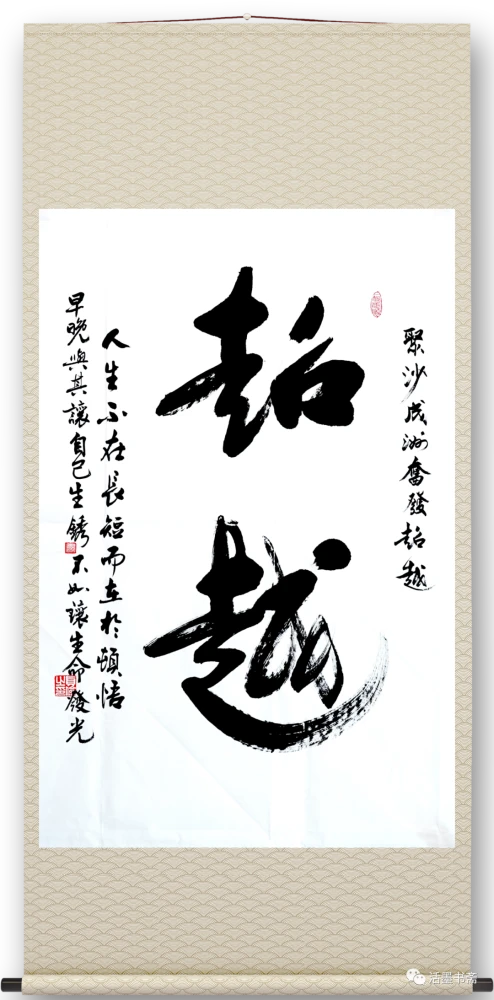 聚沙成洲奮發超越
超越
人生不在長短而在於頓悟
早晚與其讓自己生銹不如讓生命發光
活墨书斋